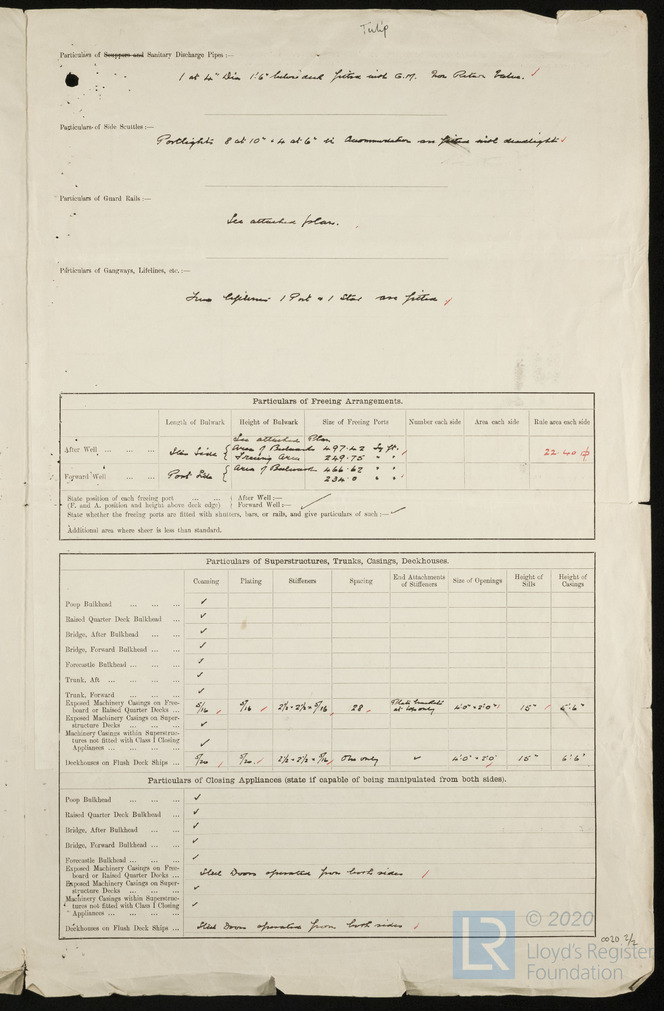 Tulip
Particulars of Scuppers and Sanitary Discharge Pipes :—
1 at 4" Dia 1'6" below deck fitted with G.M. Non Return Valve. /
Particulars of Side Scuttles :—
Portlights 8 at 10" & 4 at 6" in Accommodation are fitted with deadlights /
Particulars of Guard Rails :—
See attached plan.
Particulars of Gangways, Lifelines, etc. :—
Two lifelines 1 Port & 1 Star are fitted /
Particulars of Freeing Arrangements.
Length of Bulwark Height of Bulwark Size of Freeing Ports Number each side Area each side Rule area each side
See attached Plan
After Well ... ... ... Star Side { Area of Bulwark 497.42 Sq ft. / 22.40
Freeing Area 249.75 " "
Forward Well ... ... Port Side { Area of Bulwark 466.62 " "
234.0 " "
State position of each freeing port ... ... } After Well :—
(F. and A. position and height above deck edge) } Forward Well :— ✓
State whether the freeing ports are fitted with shutters, bars, or rails, and give particulars of such :— ✓
Additional area where sheer is less than standard.
Particulars of Superstructures, Trunks, Casings, Deckhouses.
Coaming Plating Stiffeners Spacing End Attachments of Stiffeners Size of Openings Height of Sills Height of Casings
Poop Bulkhead ... ... ... ✓
Raised Quarter Deck Bulkhead ... ✓
Bridge, After Bulkhead ... ... ✓
Bridge, Forward Bulkhead ... ... ✓
Forecastle Bulkhead ... ... ... ✓
Trunk, Aft ... ... ... ... ✓
Trunk, Forward ... ... ... ✓
Exposed Machinery Casings on Free-
board or Raised Quarter Decks ... 5/16 / 5/16 / 2½ × 2½ × 5/16 28 / at top only 4'0" × 2'0" / 15" / 6'6"
Exposed Machinery Casings on Super-
structure Decks ... ... ... ✓
Machinery Casings within Superstruc-
tures not fitted with Class I Closing
Appliances ... ... ... ... ✓
Deckhouses on Flush Deck Ships ... /20 / /20 / 2½ × 2½ × 5/16 / only ✓ 4'0" × 2'0" 15" 6'6"
Particulars of Closing Appliances (state if capable of being manipulated from both sides).
Poop Bulkhead ... ... ... ✓
Raised Quarter Deck Bulkhead ... ✓
Bridge, After Bulkhead ... ... ✓
Bridge, Forward Bulkhead ... ... ✓
Forecastle Bulkhead ... ... ... ✓
Exposed Machinery Casings on Free-
board or Raised Quarter Decks ... Steel Doors operated from both sides /
Exposed Machinery Casings on Super-
structure Decks ... ... ... ✓
Machinery Casings within Superstruc-
tures not fitted with Class I Closing
Appliances ... ... ... ... ✓
Deckhouses on Flush Deck Ships ... Steel Doors operated from both sides /
LR © 2020
Lloyd's Register
Foundation
0020 2/2